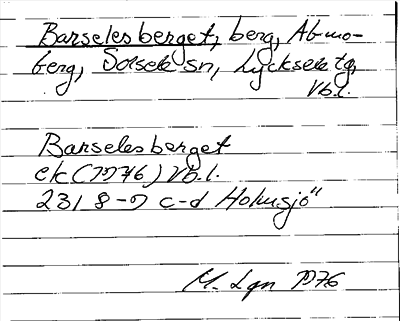 Barselesberget, berg, Abmo-
berg, Sorsele sn, Lycksele tg,
Vb.l.
Barselesberget
ek (1976) Vb.l.
231 8-9 c-d Holmsjö"
M. Lgn 1976